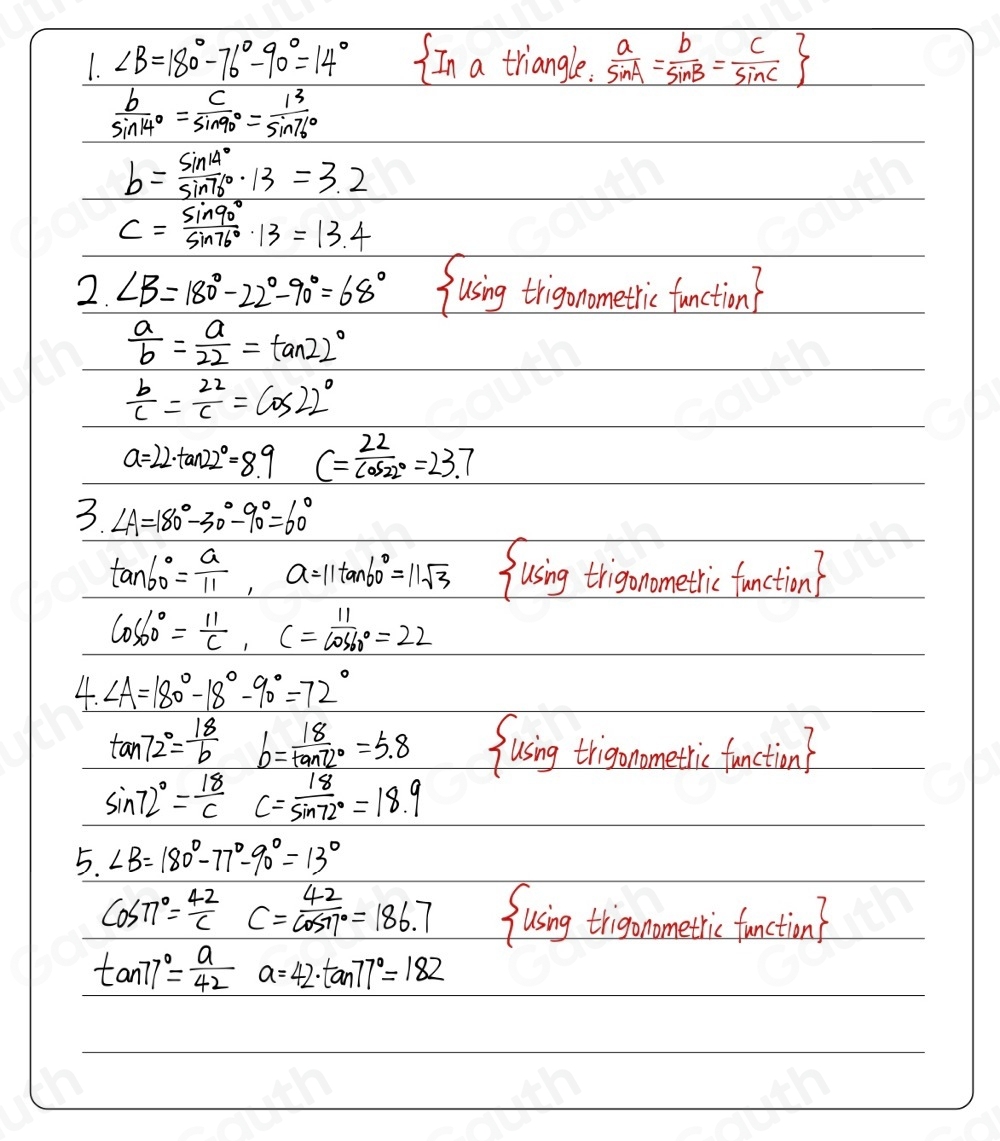 1. ∠B=180°-76°-90°=14° {In a triangle. a/sinA = b/sinB = c/sinC}
b/sin14° = c/sin90° = 13/sin76°
b = sin14°/sin76° · 13 = 3.2
c = sin90°/sin76° · 13 = 13.4
2. ∠B=180°-22°-90°=68° {using trigonometric function}
a/b = a/22 = tan22°
b/c = 22/c = cos22°
a=22·tan22°=8.9 c=22/cos22°=23.7
3. ∠A=180°-30°-90°=60°
tan60°=a/11, a=11tan60°=11√3 {using trigonometric function}
cos60°=11/c, c=11/cos60°=22
4. ∠A=180°-18°-90°=72°
tan72°=18/b b=18/tan72°=5.8 {using trigonometric function}
sin72°=18/c c=18/sin72°=18.9
5. ∠B=180°-77°-90°=13°
cos77°=42/c c=42/cos77°=186.7 {using trigonometric function}
tan77°=a/42 a=42·tan77°=182
Gauth